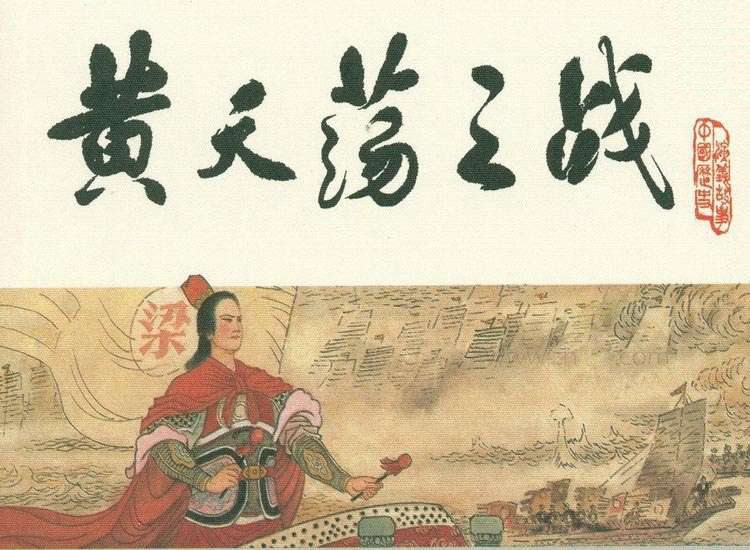 黄天荡之战
中國歷史
演義故事
梁